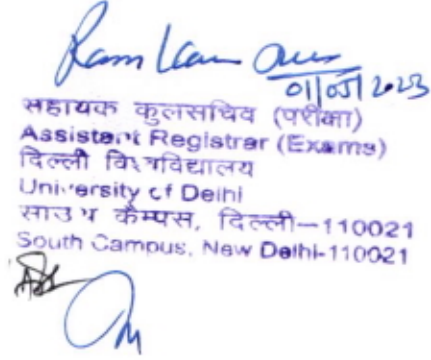 Ram
01/05/2023
सहायक कुलसचिव (परीक्षा)
Assistant Registrar (Exams)
दिल्ली विश्वविद्यालय
University of Delhi
साउथ कैम्पस, दिल्ली–110021
South Campus, New Delhi-110021